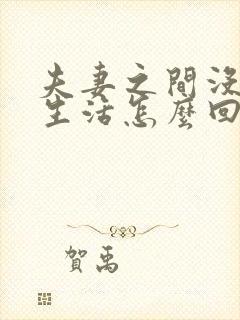 夫妻之間沒
生活怎麼回
賀禹